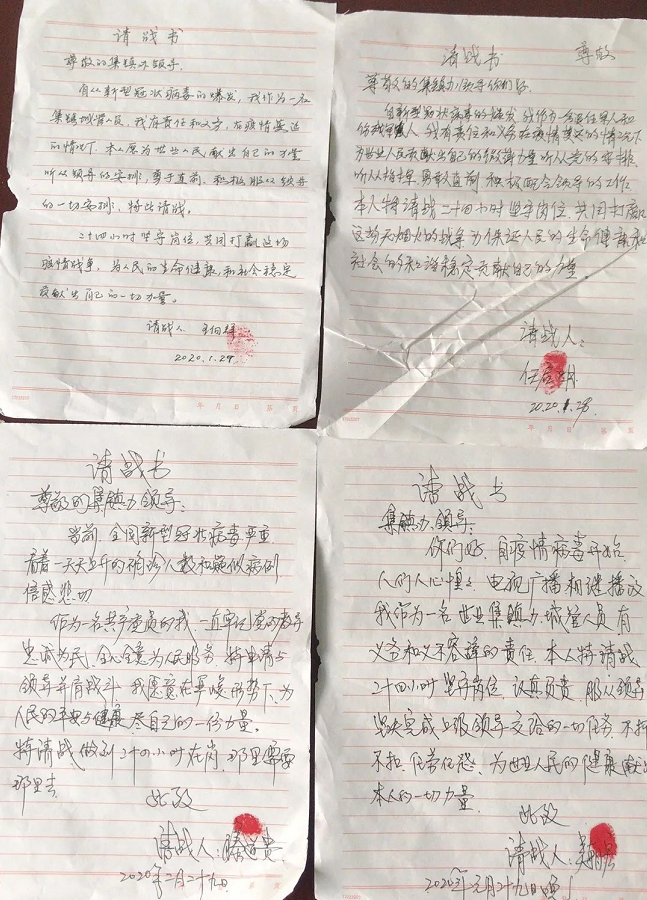 请战书
尊敬的集镇办领导:
自从新型冠状病毒的爆发,我作为一名
集镇城管人员,我有责任和义务,在疫情蔓延
的情况下,本人愿为世业人民献出自己的力量
听从领导的安排,勇于直前,积极服从领导
的一切安排,特此请战。
二十四小时坚守岗位,共同打赢这场
疫情战争,为人民的生命健康,和社会稳定
贡献出自己的一切力量。
请战人
2020.1.29.
年 月 日 第 页
请战书 尊敬
尊敬的集镇办领导你们好
自新型冠状病毒的爆发我作为一名
我有责任和义务在疫情蔓延的情况下
为世业人民贡献出自己的微薄力量听从党的安排
听从指挥,勇敢直前积极配合领导的工作
本人特请战二十四小时坚守岗位,共同打赢
这场无烟火的战争为保证人民的生命健康和
社会的和谐稳定贡献自己的力量
请战人:
2020.1.29.
年 月 日 第 页
请战书
尊敬的集镇办领导:
当前,全国新型冠状病毒严重
看着一天天上升的确诊人数和疑似病例,
倍感悲切
作为一名共产党员的我一直牢记党的教导
忠诚为民,全心全意为人民服务,特申请与
领导并肩战斗,我愿意在严峻形势下,为
人民的平安与健康尽自己的一份力量。
特请战做到二十四小时在岗,那里需要
那里去.
此致
请战人:滕道贵
2020年二月二十九日
请战书
集镇办领导:
你们好,自疫情病毒开始,
人们人心惶惶,电视广播相继播放
我作为一名世业集镇办城管人员有
义务和义不容辞的责任,本人特请战
二十四小时坚守岗位,认真负责,服从领导
坚决完成上级领导交给的一切任务,不折
不扣,任劳任怨,为世业人民的健康献出
本人的一切力量.
此致
请战人:
2020年元月二十九日晚